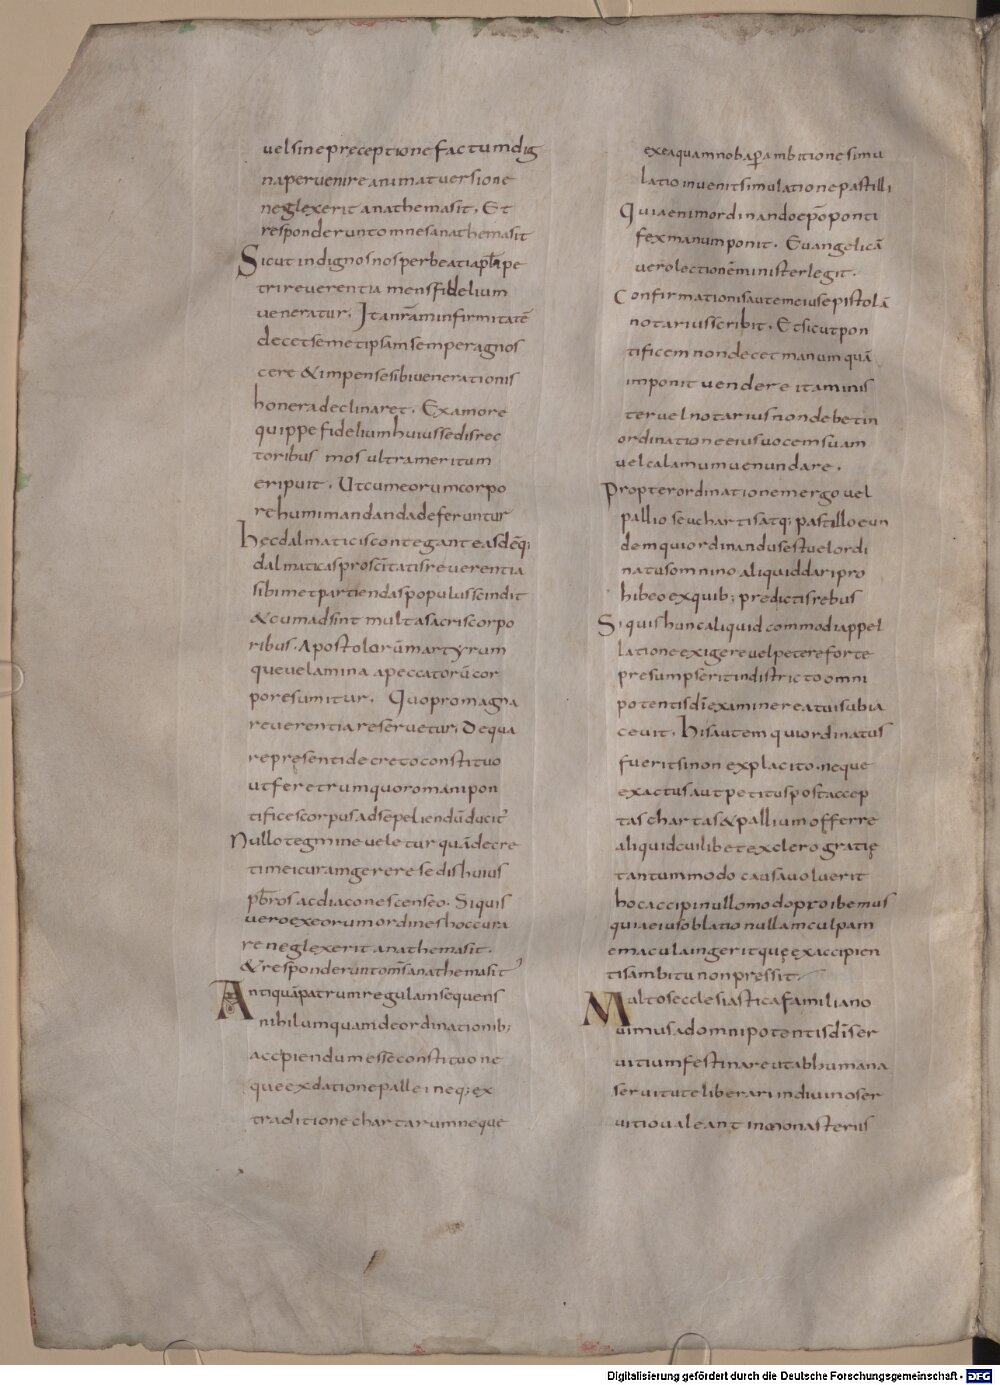 uel sine preceptione factum dig
na peruenire animaduersione
neglexerit anathema sit. Et
responderunt omnes anathema sit
Sicut indignos nos per beati apłi pe
tri reuerentia mens fidelium
ueneratur. Ita nrām infirmitatē
decet semetipsam semper agnos
cere & impense sibi uenerationis
honera declinaret. Ex amore
quippe fidelium huius sedis rec
toribus mos ultra meritum
eripuit. Ut cum eorum corpo
ra humi mandanda deferuntur
hęc dalmaticis contegant easdēq;
dalmaticas pro scītatis reuerentia
sibimet partiendas populus scindit
& cum adsint multa sacris corpo
ribus. Apostolorū martyrum
que uelamina a peccatorū cor
pore sumitur. Quo pro magna
reuerentia reseruetur. De qua
re presenti decreto constituo
ut feretrum quo romani pon
tificis corpus ad sepeliendū ducit̄
Nullo tegmine ueletur quā decre
ti mei curam gerere sedis huius
pb̄ros ac diacones censeo. Si quis
uero ex eorum ordines hoc cura
re neglexerit anathema sit.
& responderunt oms̄ anathema sit
Antiquā patrum regulam sequens
nihil umquam de ordinationib;
accipiendum esse constituo ne
que ex datione pallei neq; ex
traditione chartarum neque
ex ea quam noba p ambitione simu
latio inuenit simulatione pastilli
Quia enim ordinando ep̄o ponti
fex manum ponit. Euangelicā
uero lectionēm minister legit.
Confirmationis autem eius epistolā
notarius scribit. Et sicut pon
tificem non decet manum quā
imponit uendere ita minis
ter uel notarius non debet in
ordinatione eius uocem suam
uel calamum uenundare.
Propter ordinationem ergo uel
pallio seu chartis atq; pastillo eun
dem qui ordinandus est uel ordi
natus omnino aliquid dari pro
hibeo ex quib; predictis rebus
Si quis hunc aliquid commodi appel
latione exigere uel petere forte
presumpserit in districto omni
potentis dī examine reatui subia
ceuit. his autem qui ordinatus
fuerit si non ex placito. neque
exactus aut petitus post accep
tas chartas & pallium offerre
aliquid cuilibet ex clero gratię
tantummodo causa uoluerit
hoc accipi nullo modo proibemus
quia eius oblatio nullam culpam
e macula ingerit quę ex accipien
tis ambitu non pressit.
Multos ecclesiastica familia no
uimus ad omnipotentis dī ser
uitium festinare ut ab humana
seruitute liberari in diuino ser
uitio ualeant in monasteriis
Digitalisierung gefördert durch die Deutsche Forschungsgemeinschaft - DFG